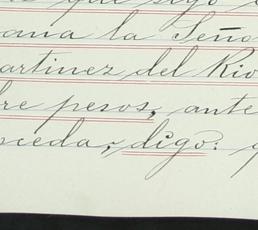 que sigo
ana la Seño
artinez del Rio
re pesos, ante
ceda, digo: